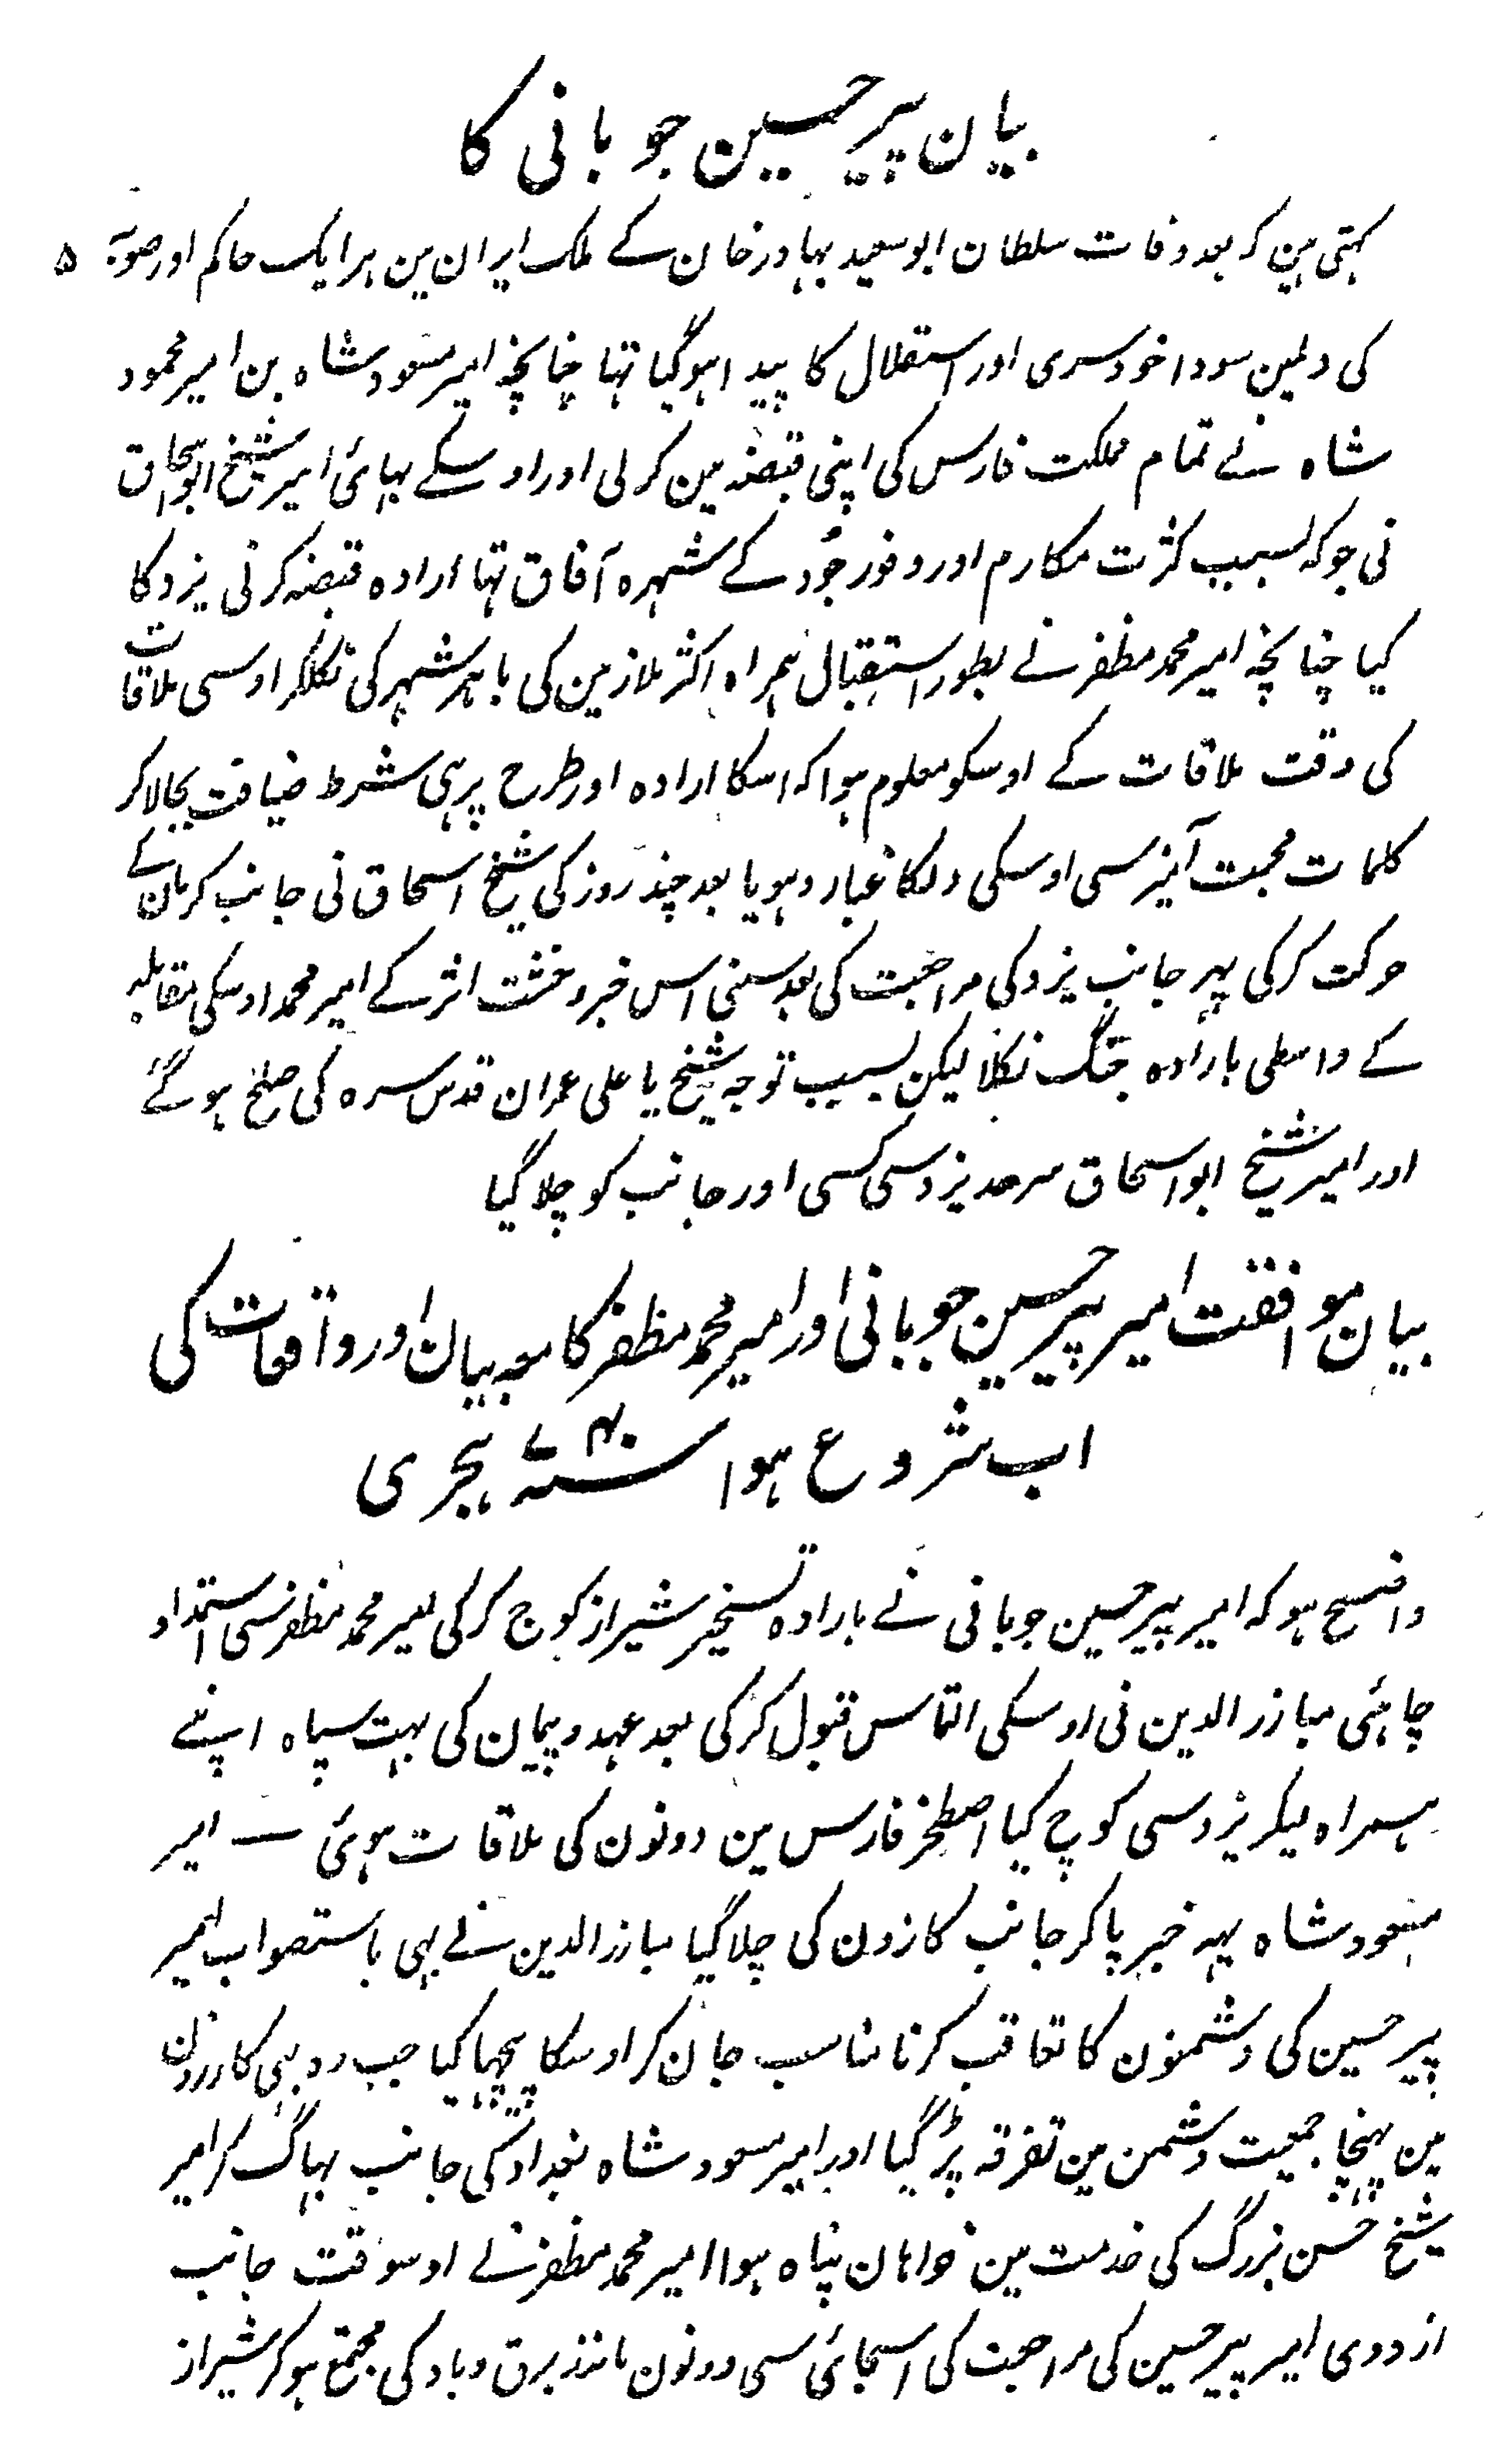 بیان پیر حسین جوبانی کا
کہتی ہین کہ بعد وفات سلطان ابوسعید بہادرخان کے ملک ایران مین ہر ایک حاکم اور صوبہ ۵
کی دلمین سودا خودسری اور استقلال کا پیدا ہوگیا تہا چنانچہ امیر مسعود شاہ بن امیر محمود
شاہ نے تمام مملکت فارس کی اپنی قبضہ مین کرلی اور اوسکے بہائی امیر شیخ ابواسحاق
نی جو کہ بسبب کثرت مکارم اور وفور جُود کے شہرہ آفاق تہا ارادہ قبضہ کرنی یزد کا
کیا چنانچہ امیر محمد مظفر نے بطور استقبال ہمراہ اکثر ملازمین کی باہر شہر کی نکلکر اوسی ملاقات
کی وقت ملاقات کے اوسکو معلوم ہوا کہ اسکا ارادہ اور طرح پر ہی شرط ضیافت بجا لاکر
کلمات محبت آمیز سی اوسکی دلکا غبار دہویا بعد چند روز کی شیخ اسحاق نی جانب کرمان کے
حرکت کرکی پہر جانب یزد کی مراجعت کی بعد سننی اس خبر وحشت اثر کے امیر محمد اوسکی مقابلہ
کے واسطی بارادہ جنگ نکلا لیکن بسبب توجہ شیخ یا علی عمران قدس سرہ کی صلح ہوگئے
اور امیر شیخ ابواسحاق سرحد یزد سی کسی اور جانب کو چلا گیا
بیان موافقت امیر پیر حسین جوبانی اور امیر محمد مظفر کا معہ بیان اور واقعات کی
اب شروع ہوا سنہ ۷۴۰ ہجری
واضح ہو کہ امیر پیر حسین جوبانی نے بارادہ تسخیر شیراز کوچ کرکی امیر محمد مظفر سی استمداد
چاہئی مبارز الدین نی اوسکی التماس قبول کرکی بعد عہد و پیمان کی بہت سپاہ اپنے
ہمراہ لیکر یزد سی کوچ کیا اصطخر فارس مین دونون کی ملاقات ہوئی — امیر
مسعود شاہ یہہ خبر پاکر جانب کازرون کی چلا گیا مبارز الدین نے بہی باستصواب امیر
پیر حسین کی دشمنون کا تعاقب کرنا مناسب جان کر اوسکا پیچہا کیا جب وہ بہی کازرون
مین پہنچا جمعیت دشمن مین تفرقہ پڑگیا اور امیر مسعود شاہ بغداد کی جانب بہاگ کر امیر
شیخ حسن بزرگ کی خدمت مین خواہان پناہ ہوا امیر محمد مظفر نے اوسوقت جانب
اردوی امیر پیر حسین کی مراجعت کی اسجائی سی دونون مانند برق و باد کی مجتمع ہوکر شیراز